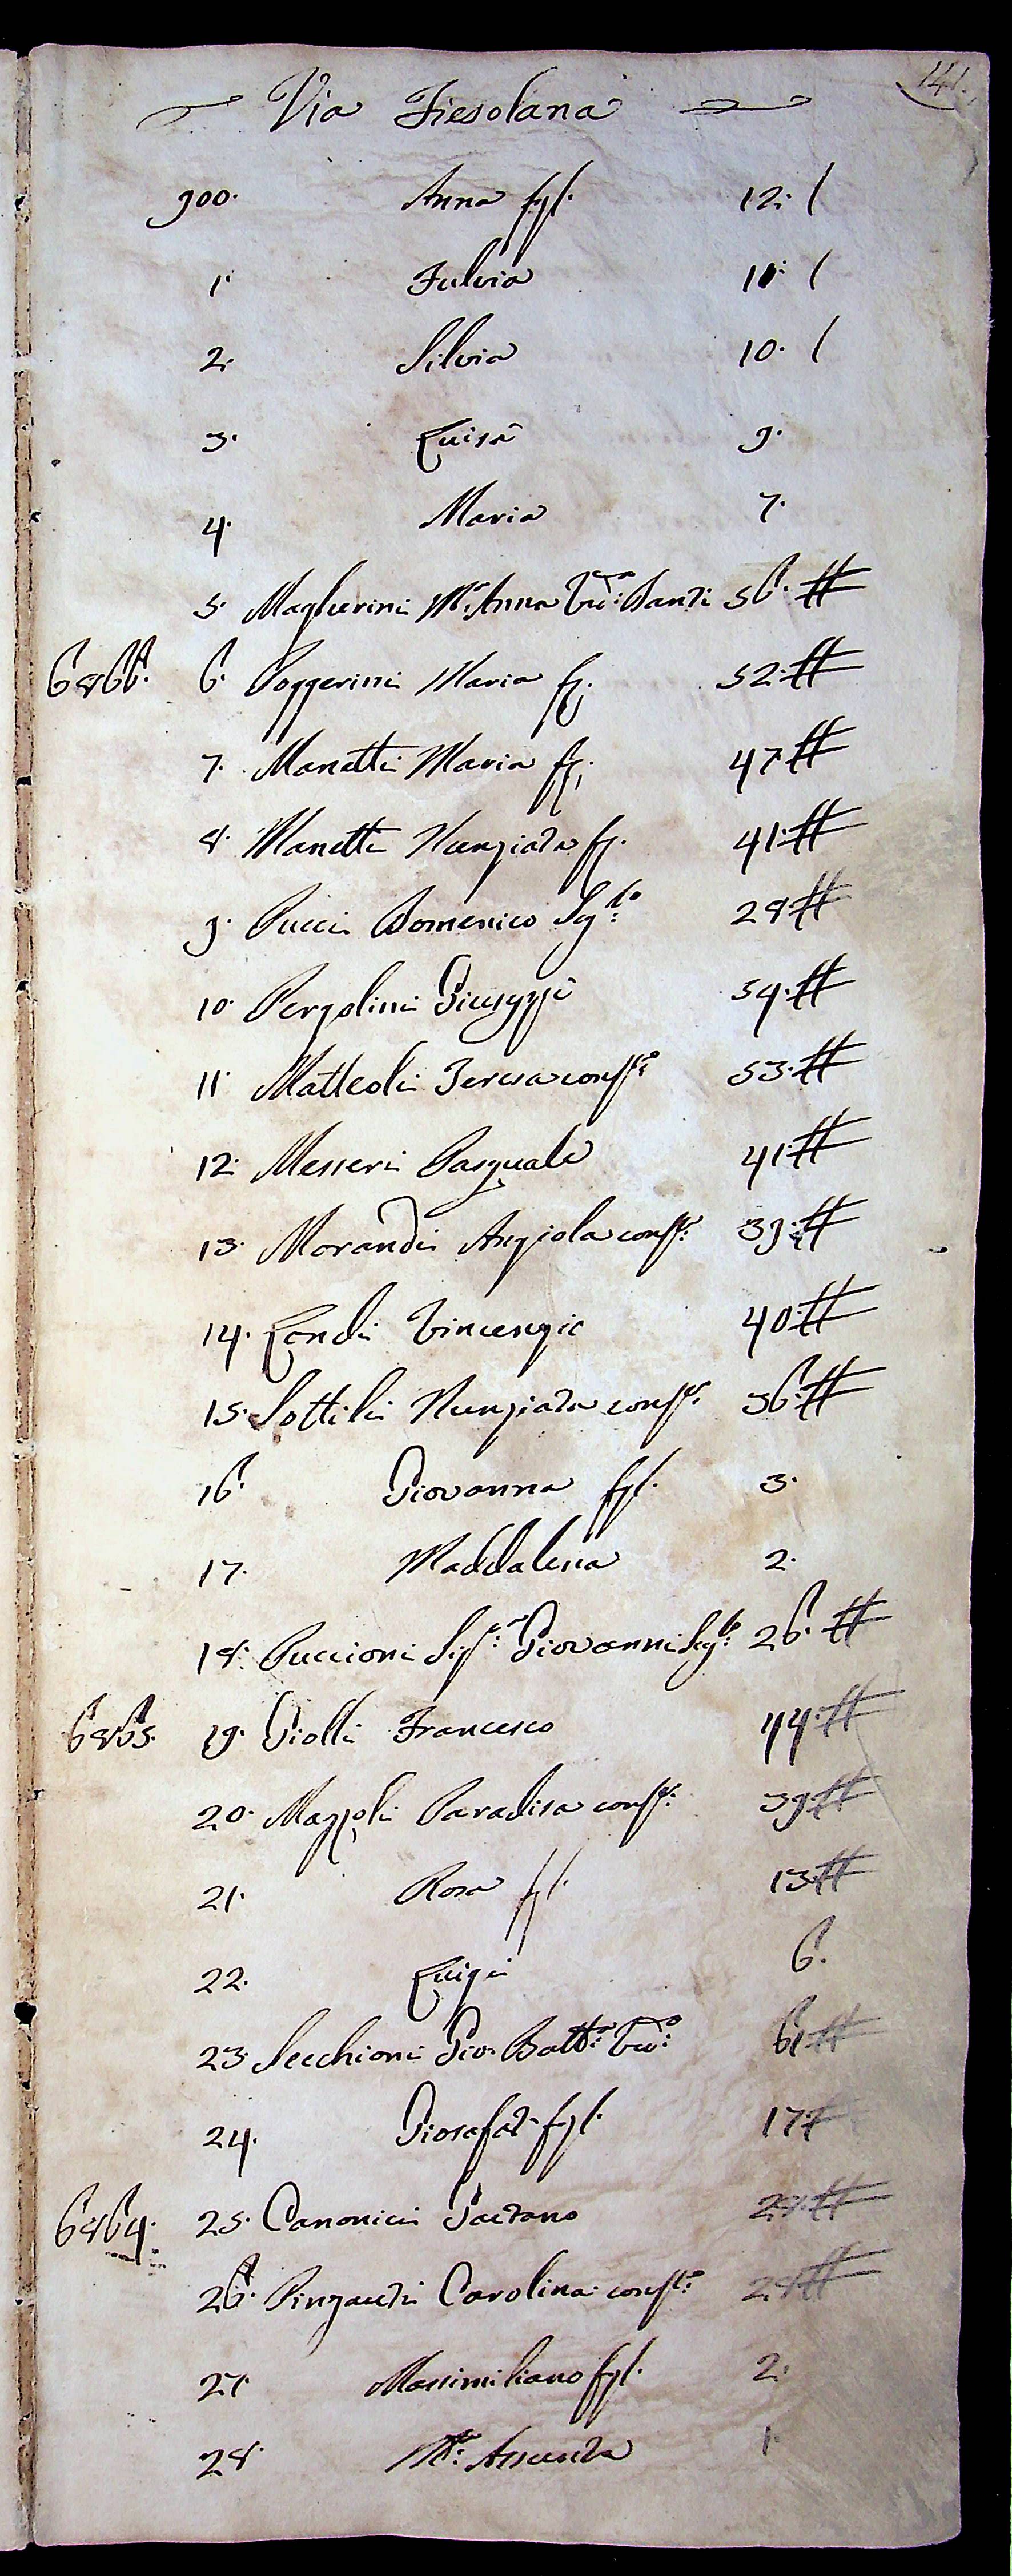 141.
Via Fiesolana
900. Anna fgl. 12. /
1. Fulvia 11. /
2. Silvia 10. /
3. Luisa 9.
4. Maria 7.
5. Magherini Mª. Anna Vedª: Santi 56. #
6866. 6. Poggerini Maria fz. 52. #
7. Manetti Maria fz. 47. #
8. Manetti Nunziata fz. 41. #
9. Pucci Domenico Sgˡᵒ: 28. #
10. Pergolini Giuseppe 54. #
11. Matteoli Teresa consᵗᵉ: 53. #
12. Messeri Pasquale 41. #
13. Morandi Angiola consᵗᵉ: 39. #
14. Londi Vincenzio 40. #
15. Sottili Nunziata consᵗᵉ: 36. #
16. Giovanna fgl. 3.
17. Maddalena 2.
18. Puccioni Sigʳᵉ: Giovanni Sgˡᵒ: 26. #
6865. 19. Giolli Francesco 44. #
20. Mazzoli Paradisa consᵗᵉ: 39. #
21. Rosa fgl. 13. #
22. Luigi 6.
23. Secchioni Gio. Battª: Vedº: 61. #
24. Giosafat fgl. 17. #
6864. 25. Canonici Gaetano 28. #
26. Pinzauti Carolina consᵗᵉ: 28. #
27. Massimiliano fgl. 2.
28. Mª: Assunta 1.